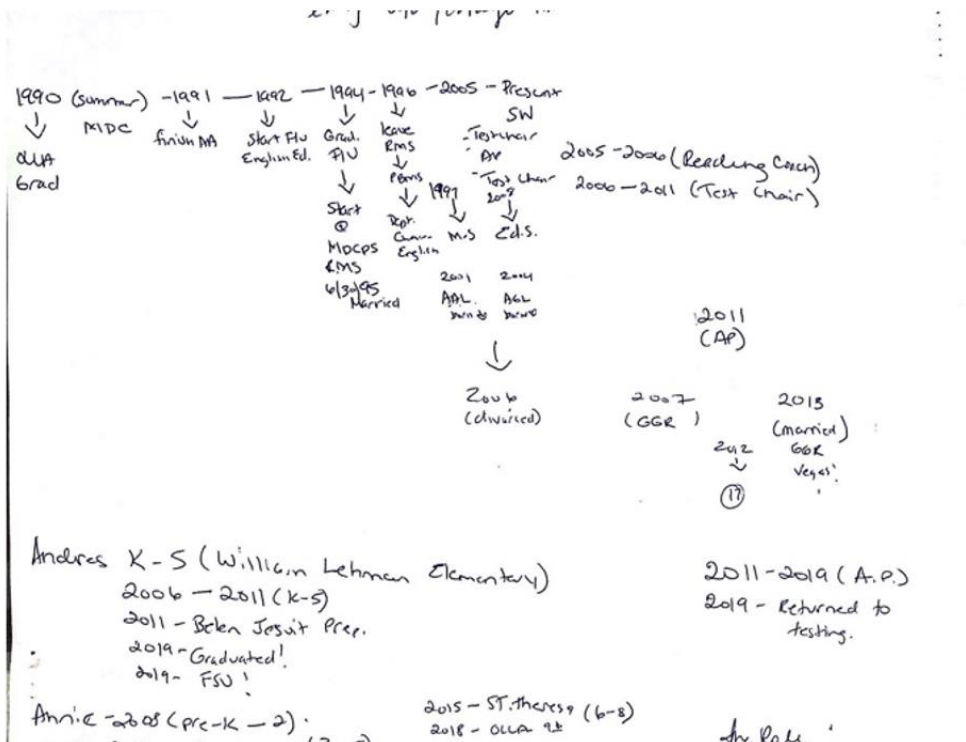 1990 (summer) - 1991 — 1992 — 1994 - 1996 - 2005 - Present
OLLA
Grad
MDC
finish AA
Start FIU
English Ed.
Grad.
FIU
Start
@
MDCPS
RMS
6/30/95
Married
leave
RMS
PBMS
Dept.
Chair
English
1997
M.S
2001
AAL
born
SW
- Test chair
AP
- Test Chair
Ed.S.
2004
AGL
born
2005 - 2006 (Reading Coach)
2006 - 2011 (Test Chair)
2011
(AP)
2006
(divorced)
2007
(GGR)
2012
17
2013
(married)
GGR
Vegas!
Andres K-5 (William Lehman Elementary)
2006 — 2011 (K-5)
2011 - Belen Jesuit Prep.
2019 - Graduated!
2019 - FSU!
2011-2019 (A.P.)
2019 - Returned to
testing.
Annie - 2008 (pre-K — 2)
2015 - ST. theresa (6-8)
2018 - OLLA 9th